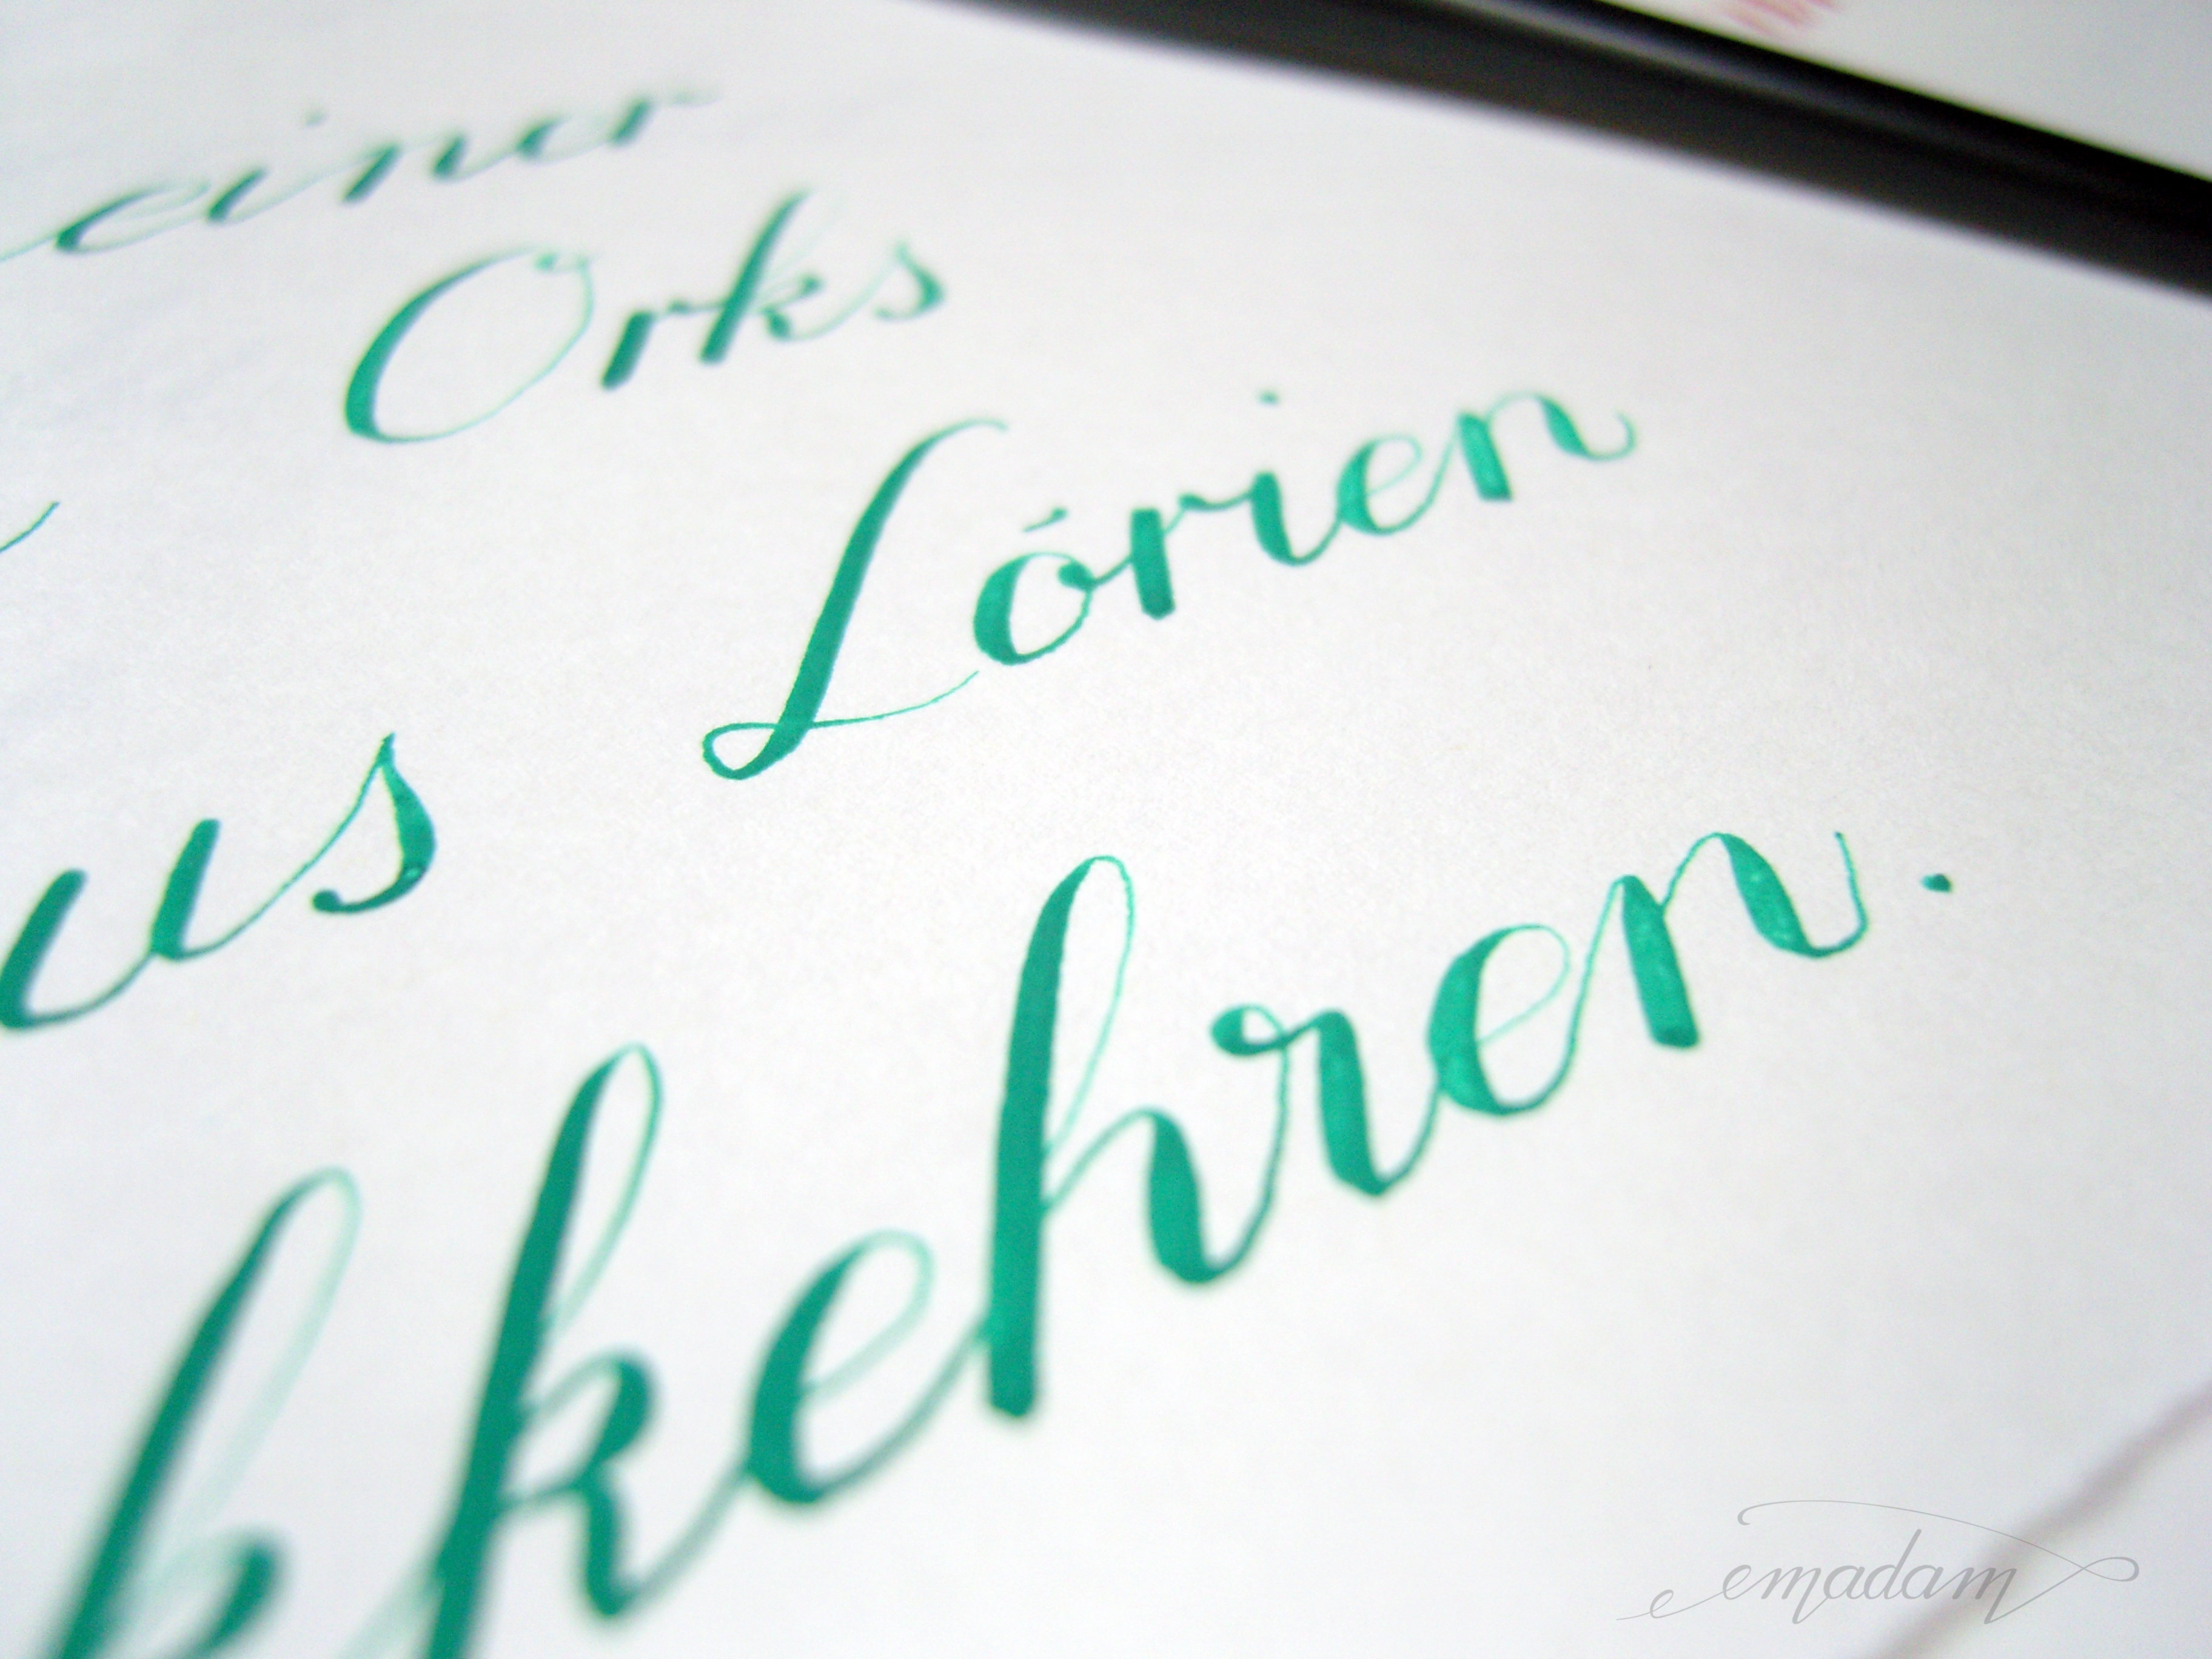 einer
Orks
us Lórien
kkehren.
emadam